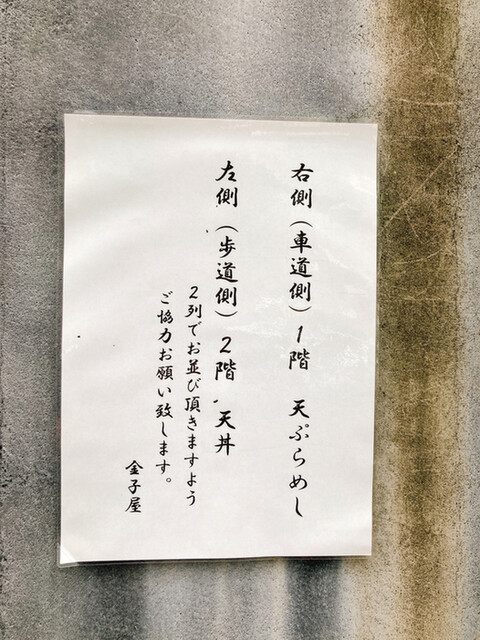 右側(車道側)1階 天ぷらめし
左側(歩道側)2階 天丼
2列でお並び頂きますよう
ご協力お願い致します。
金子屋